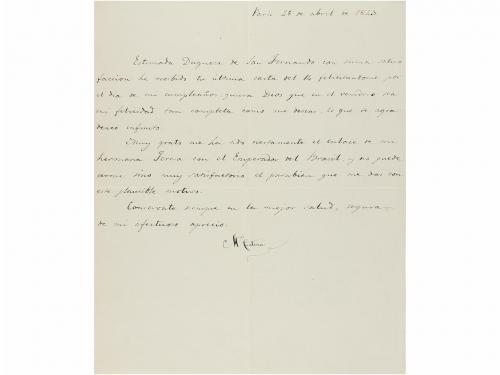 Paris 28 de abril de 1843
Estimada Duquesa de San Fernando con suma satis
faccion he recibido tu ultima carta del 14 felicitandome por
el dia de mi cumpleaños, quiera Dios que en el venidero sea
mi felicidad tan completa como me deseas, lo que te agra
dezco infinito.
Muy grato me ha sido ciertamente el enlace de mi
hermana Teresa con el Emperador del Brasil, y no puede
serme sino muy satisfactorio el parabien que me das con
este plausible motivo.
Conservate siempre en la mejor salud, segura
de mi afectuoso aprecio.
M Cristina